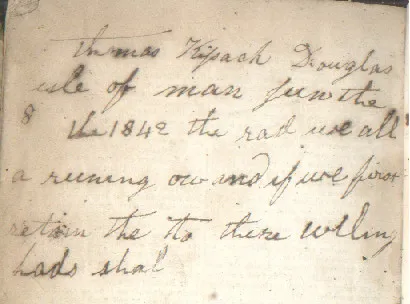 thomas Kipach Douglas
isle of man June the
8 the 1842 the rad we all
a runing ow and if we first
retorn the to there willing
hads shal